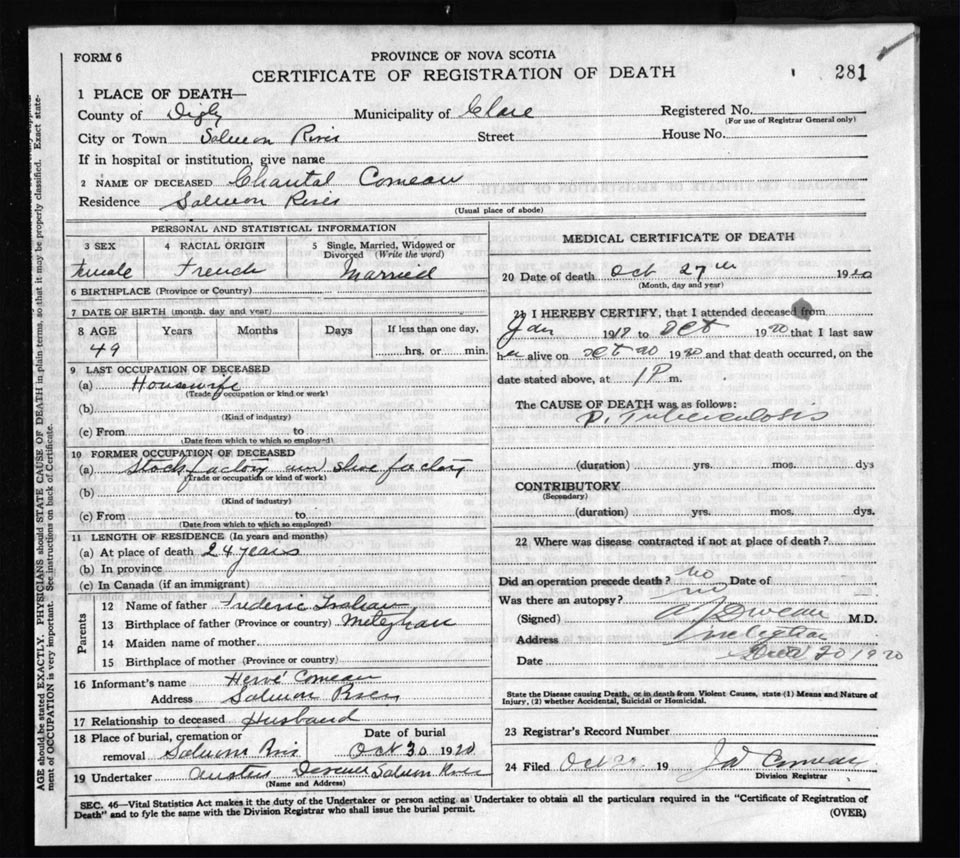 FORM 6
PROVINCE OF NOVA SCOTIA
CERTIFICATE OF REGISTRATION OF DEATH
281
1 PLACE OF DEATH—
County of Digby Municipality of Clare Registered No.
(For use of Registrar General only)
City or Town Salmon River Street House No.
If in hospital or institution, give name
2 NAME OF DECEASED Chantal Comeau
Residence Salmon River
(Usual place of abode)
PERSONAL AND STATISTICAL INFORMATION
3 SEX 4 RACIAL ORIGIN 5 Single, Married, Widowed or
Divorced (Write the word)
Female French Married
6 BIRTHPLACE (Province or Country)
7 DATE OF BIRTH (month, day and year)
8 AGE Years Months Days If less than one day,
49 hrs. or min.
9 LAST OCCUPATION OF DECEASED
(a) Housewife
(Trade or occupation or kind or work)
(b)
(Kind of industry)
(c) From to
(Date from which to which so employed)
10 FORMER OCCUPATION OF DECEASED
(a) Stock factory and shoe factory
(Trade or occupation or kind of work)
(b)
(Kind of industry)
(c) From to
(Date from which to which so employed)
11 LENGTH OF RESIDENCE (In years and months)
(a) At place of death 24 years
(b) In province
(c) In Canada (if an immigrant)
Parents
12 Name of father Frederic
13 Birthplace of father (Province or country) Meteghan
14 Maiden name of mother
15 Birthplace of mother (Province or country)
16 Informant's name Hervé Comeau
Address Salmon River
17 Relationship to deceased Husband
18 Place of burial, cremation or Date of burial
removal Salmon River Oct 30 1920
19 Undertaker Salmon River
(Name and Address)
MEDICAL CERTIFICATE OF DEATH
20 Date of death Oct 27th 1920
(Month, day and year)
21 I HEREBY CERTIFY, that I attended deceased from
Jan 1918 to Oct 1920 that I last saw
her alive on Oct 20 1920 and that death occurred, on the
date stated above, at 1 P m.
The CAUSE OF DEATH was as follows:
P. Tuberculosis
(duration) yrs. mos. dys
CONTRIBUTORY
(Secondary)
(duration) yrs. mos. dys.
22 Where was disease contracted if not at place of death?
Did an operation precede death? no Date of
Was there an autopsy? no
(Signed) M.D.
Address Meteghan
Date 20 1920
State the Disease causing Death, or in death from Violent Causes, state (1) Means and Nature of
Injury, (2) whether Accidental, Suicidal or Homicidal.
23 Registrar's Record Number
24 Filed Oct 19 Comeau
Division Registrar
SEC. 46—Vital Statistics Act makes it the duty of the Undertaker or person acting as Undertaker to obtain all the particulars required in the "Certificate of Registration of
Death" and to fyle the same with the Division Registrar who shall issue the burial permit.
(OVER)
AGE should be stated EXACTLY. PHYSICIANS should STATE CAUSE OF DEATH in plain terms, so that it may be properly classified. Exact state-
ment of OCCUPATION is very important. See instructions on back of Certificate.